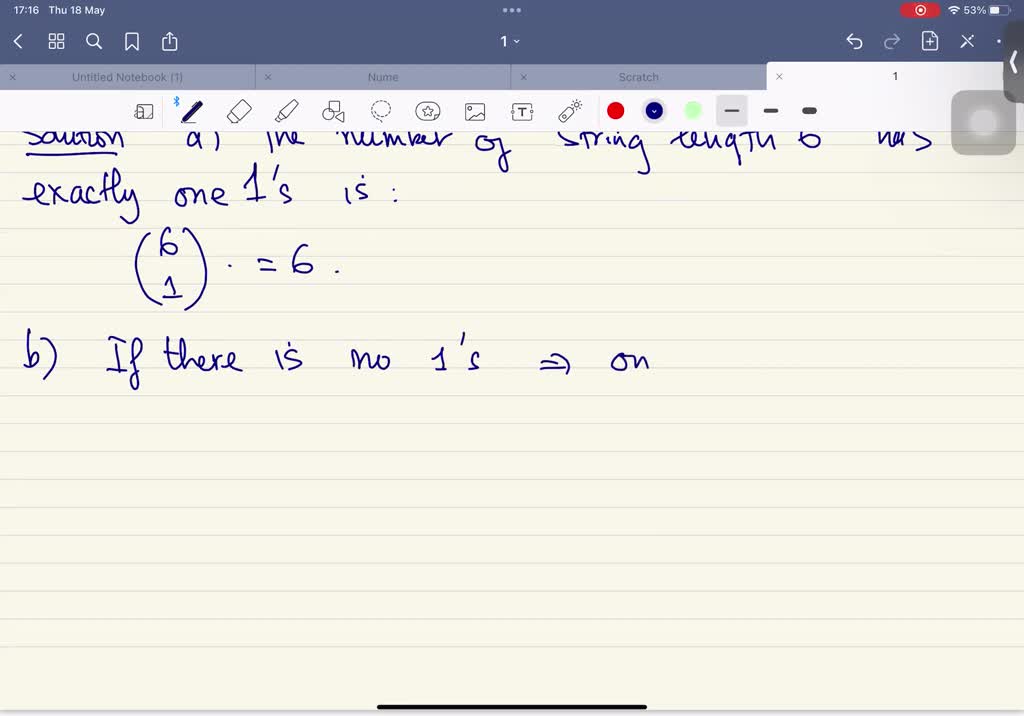 17:16 Thu 18 May
53%
1
Untitled Notebook (1)
Nume
Scratch
1
Solution a) The number of string length 6 has
exactly one 1's is:
(6
1) . = 6 .
b) If there is no 1's ⇒ on